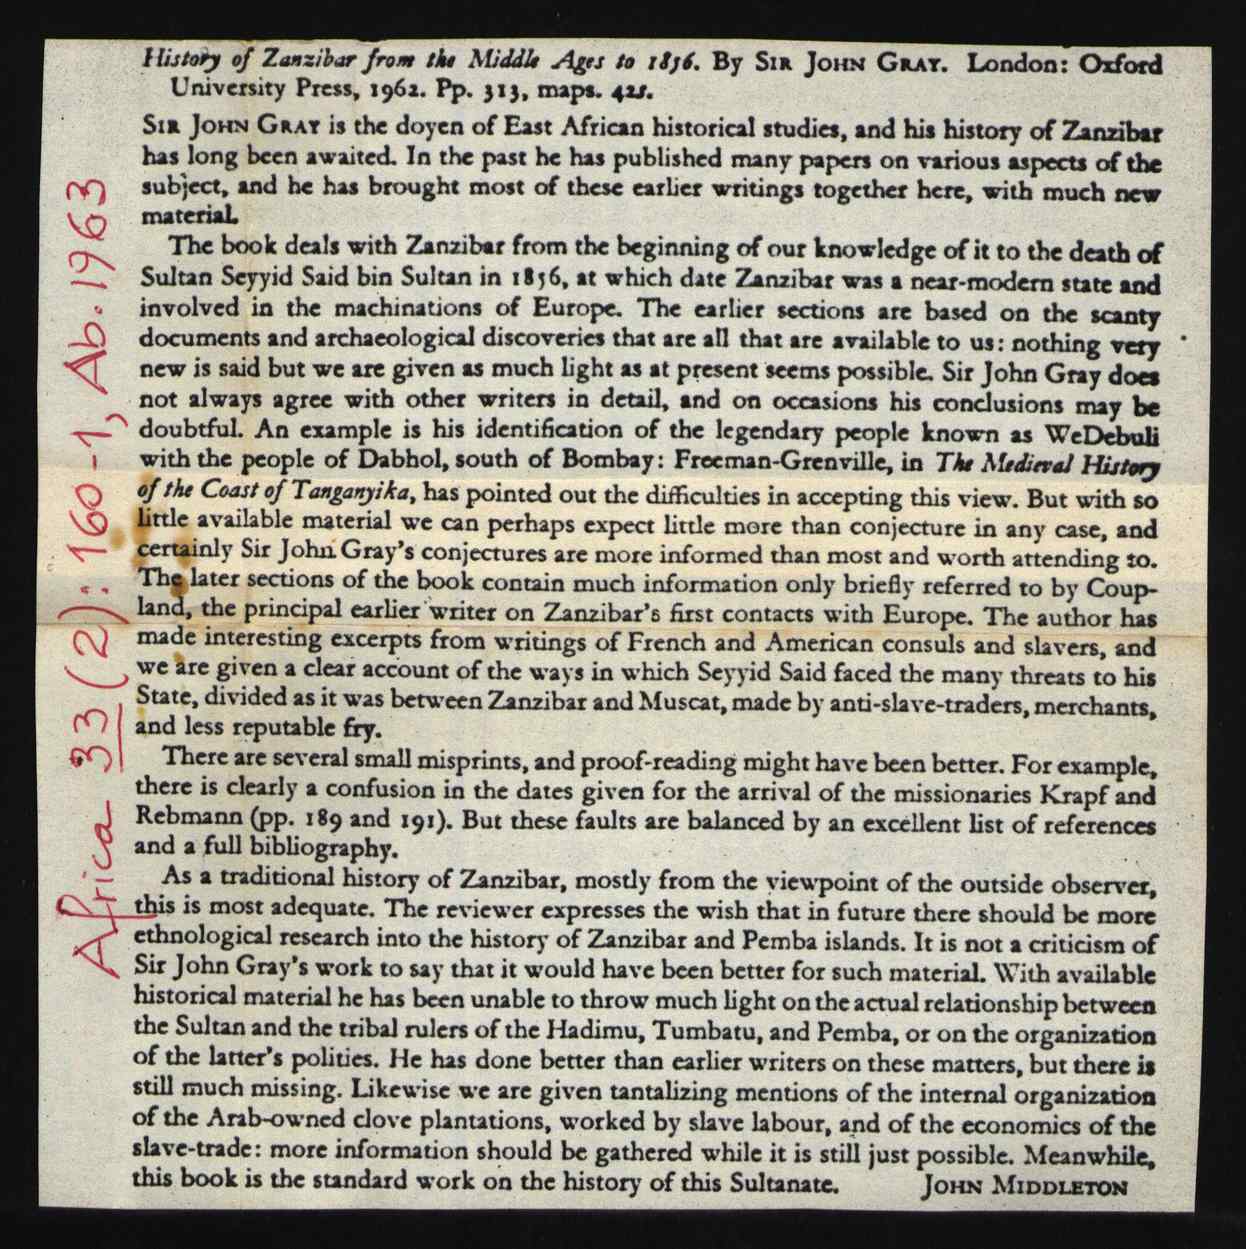 History of Zanzibar from the Middle Ages to 1856. By SIR JOHN GRAY. London: Oxford
University Press, 1962. Pp. 313, maps. 42s.
SIR JOHN GRAY is the doyen of East African historical studies, and his history of Zanzibar
has long been awaited. In the past he has published many papers on various aspects of the
subject, and he has brought most of these earlier writings together here, with much new
material.
The book deals with Zanzibar from the beginning of our knowledge of it to the death of
Sultan Seyyid Said bin Sultan in 1856, at which date Zanzibar was a near-modern state and
involved in the machinations of Europe. The earlier sections are based on the scanty
documents and archaeological discoveries that are all that are available to us: nothing very
new is said but we are given as much light as at present seems possible. Sir John Gray does
not always agree with other writers in detail, and on occasions his conclusions may be
doubtful. An example is his identification of the legendary people known as WeDebuli
with the people of Dabhol, south of Bombay: Freeman-Grenville, in The Medieval History
of the Coast of Tanganyika, has pointed out the difficulties in accepting this view. But with so
little available material we can perhaps expect little more than conjecture in any case, and
certainly Sir John Gray's conjectures are more informed than most and worth attending to.
The later sections of the book contain much information only briefly referred to by Coup-
land, the principal earlier writer on Zanzibar's first contacts with Europe. The author has
made interesting excerpts from writings of French and American consuls and slavers, and
we are given a clear account of the ways in which Seyyid Said faced the many threats to his
State, divided as it was between Zanzibar and Muscat, made by anti-slave-traders, merchants,
and less reputable fry.
There are several small misprints, and proof-reading might have been better. For example,
there is clearly a confusion in the dates given for the arrival of the missionaries Krapf and
Rebmann (pp. 189 and 191). But these faults are balanced by an excellent list of references
and a full bibliography.
As a traditional history of Zanzibar, mostly from the viewpoint of the outside observer,
this is most adequate. The reviewer expresses the wish that in future there should be more
ethnological research into the history of Zanzibar and Pemba islands. It is not a criticism of
Sir John Gray's work to say that it would have been better for such material. With available
historical material he has been unable to throw much light on the actual relationship between
the Sultan and the tribal rulers of the Hadimu, Tumbatu, and Pemba, or on the organization
of the latter's polities. He has done better than earlier writers on these matters, but there is
still much missing. Likewise we are given tantalizing mentions of the internal organization
of the Arab-owned clove plantations, worked by slave labour, and of the economics of the
slave-trade: more information should be gathered while it is still just possible. Meanwhile,
this book is the standard work on the history of this Sultanate. JOHN MIDDLETON
Africa 33 (2): 160-1, Ab. 1963